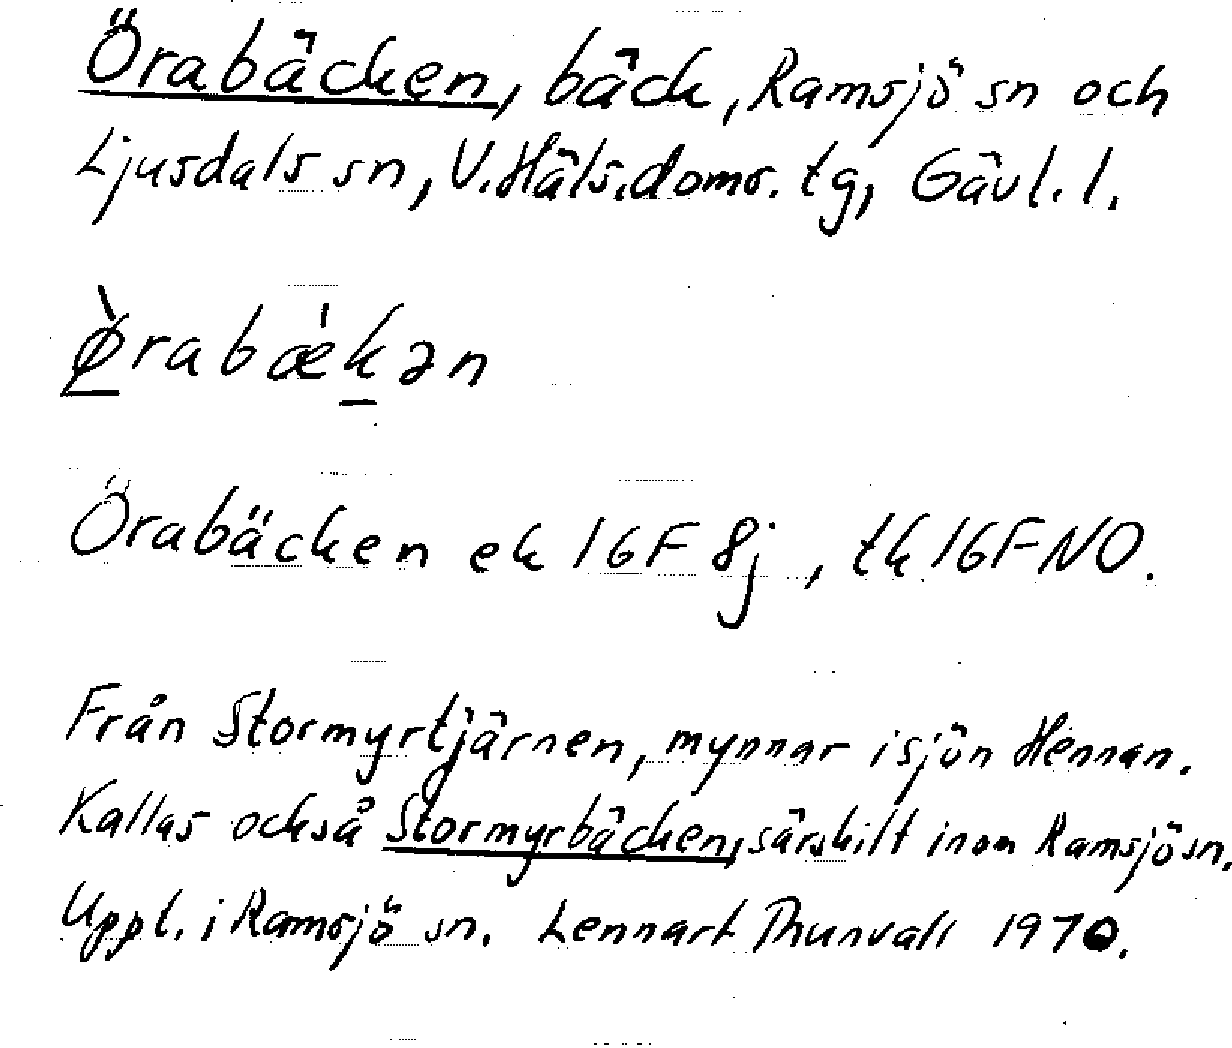 Örabäcken, bäck, Ramsjö sn och
Ljusdals sn, V. Häls. doms. tg, Gävl. l.
ø̀rabæ̍kən
Örabäcken ek 16F 8j, tk 16F NO.
Från Stormyrtjärnen, mynnar i sjön Hennan.
Kallas också Stormyrbäcken, särskilt inom Ramsjö sn.
Uppl. i Ramsjö sn. Lennart Thunvall 1970.